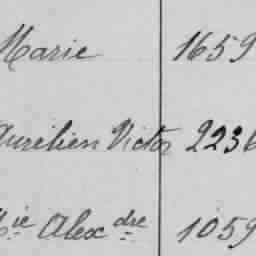 Marie 1659
Aurélien Victor 2236
Mie Alexdre 1059